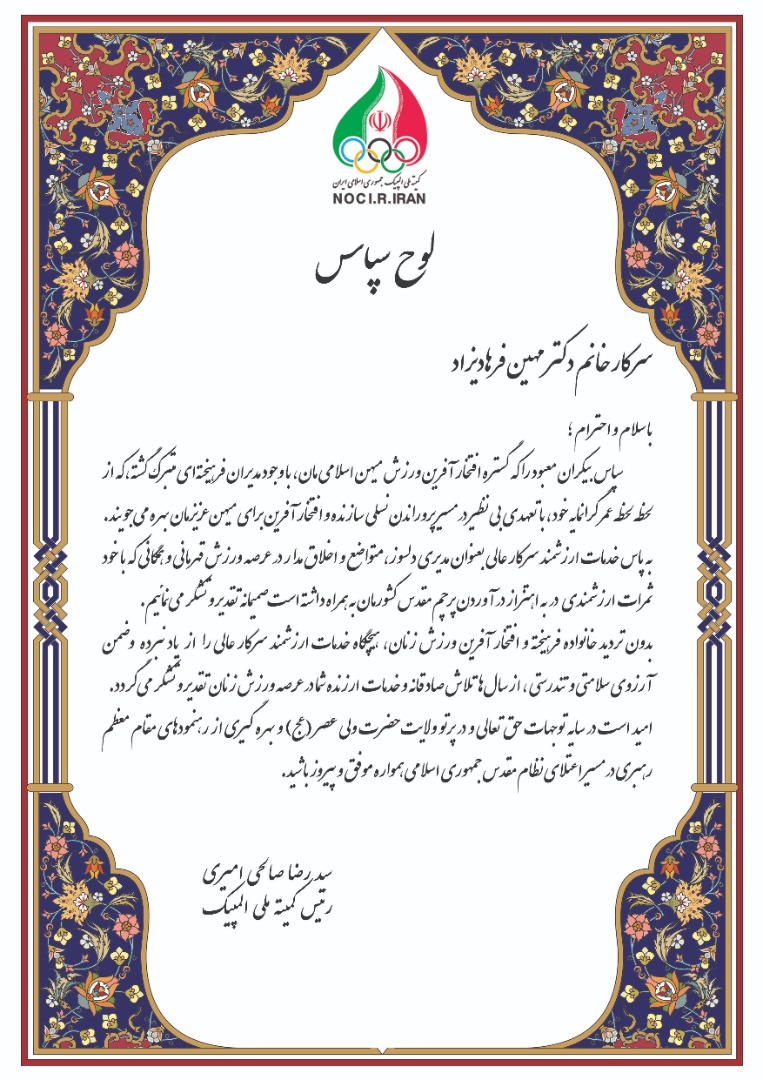 کمیته ملی المپیک جمهوری اسلامی ایران
NOC I.R.IRAN
لوح سپاس
سرکار خانم دکتر مهین فرهادیزاد
با سلام و احترام ؛
سپاس بیکران معبود را که گستره افتخار آفرین ورزش میهن اسلامی مان، با وجود مدیران فرهیخته ای متبرک گشته، که از
لحظه لحظه عمر گرانمایه خود، با تعهدی بی نظیر در مسیر پروراندن نسلی سازنده و افتخار آفرین برای میهن عزیزمان بهره می جویند.
به پاس خدمات ارزشمند سرکار عالی بعنوان مدیری دلسوز، متواضع و اخلاق مدار در عرصه ورزش قهرمانی و همگانی که با خود
ثمرات ارزشمندی در به اهتزاز در آوردن پرچم مقدس کشورمان به همراه داشته است صمیمانه تقدیر و تشکر می نمائیم.
بدون تردید خانواده فرهیخته و افتخار آفرین ورزش زنان، هیچگاه خدمات ارزشمند سرکار عالی را از یاد نبرده وضمن
آرزوی سلامتی و تندرستی، از سال ها تلاش صادقانه و خدمات ارزنده شما در عرصه ورزش زنان تقدیر و تشکر می گردد.
امید است در سایه توجهات حق تعالی و در پرتو ولایت حضرت ولی عصر (عج) و بهره گیری از رهنمودهای مقام معظم
رهبری در مسیر اعتلای نظام مقدس جمهوری اسلامی همواره موفق و پیروز باشید.
سید رضا صالحی امیری
رئیس کمیته ملی المپیک